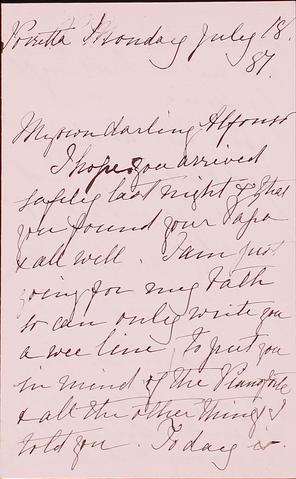 Poretta Monday July 18.
87.
My own darling Alfonso
I hope you arrived
safely last night & that
you found your Papa
& all well. I am just
going for my bath
so can only write you
a wee line, to put you
in mind of the Pianoforte
& all the other things I
told you. Today is